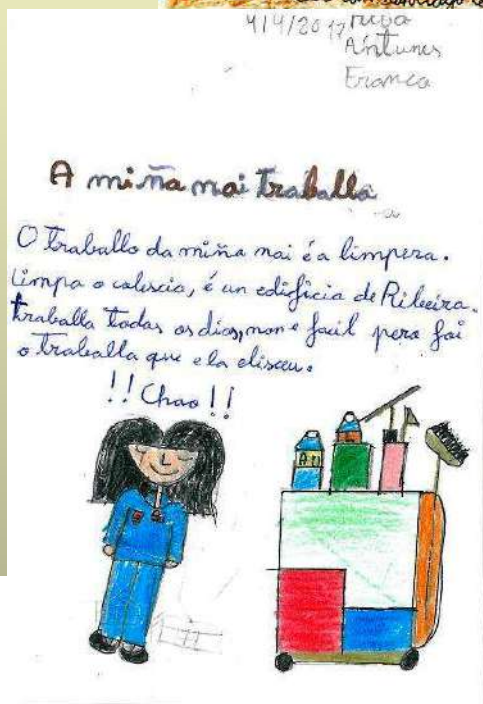 4/4/2017
Antunes
Franco
A miña nai traballa
O traballo da miña nai é a limpera.
Limpa o colescio, é un edificio de Ribeira.
traballa todos os dios, non e facil pero foi
o traballo que ela eliseu.
!! Chao !!